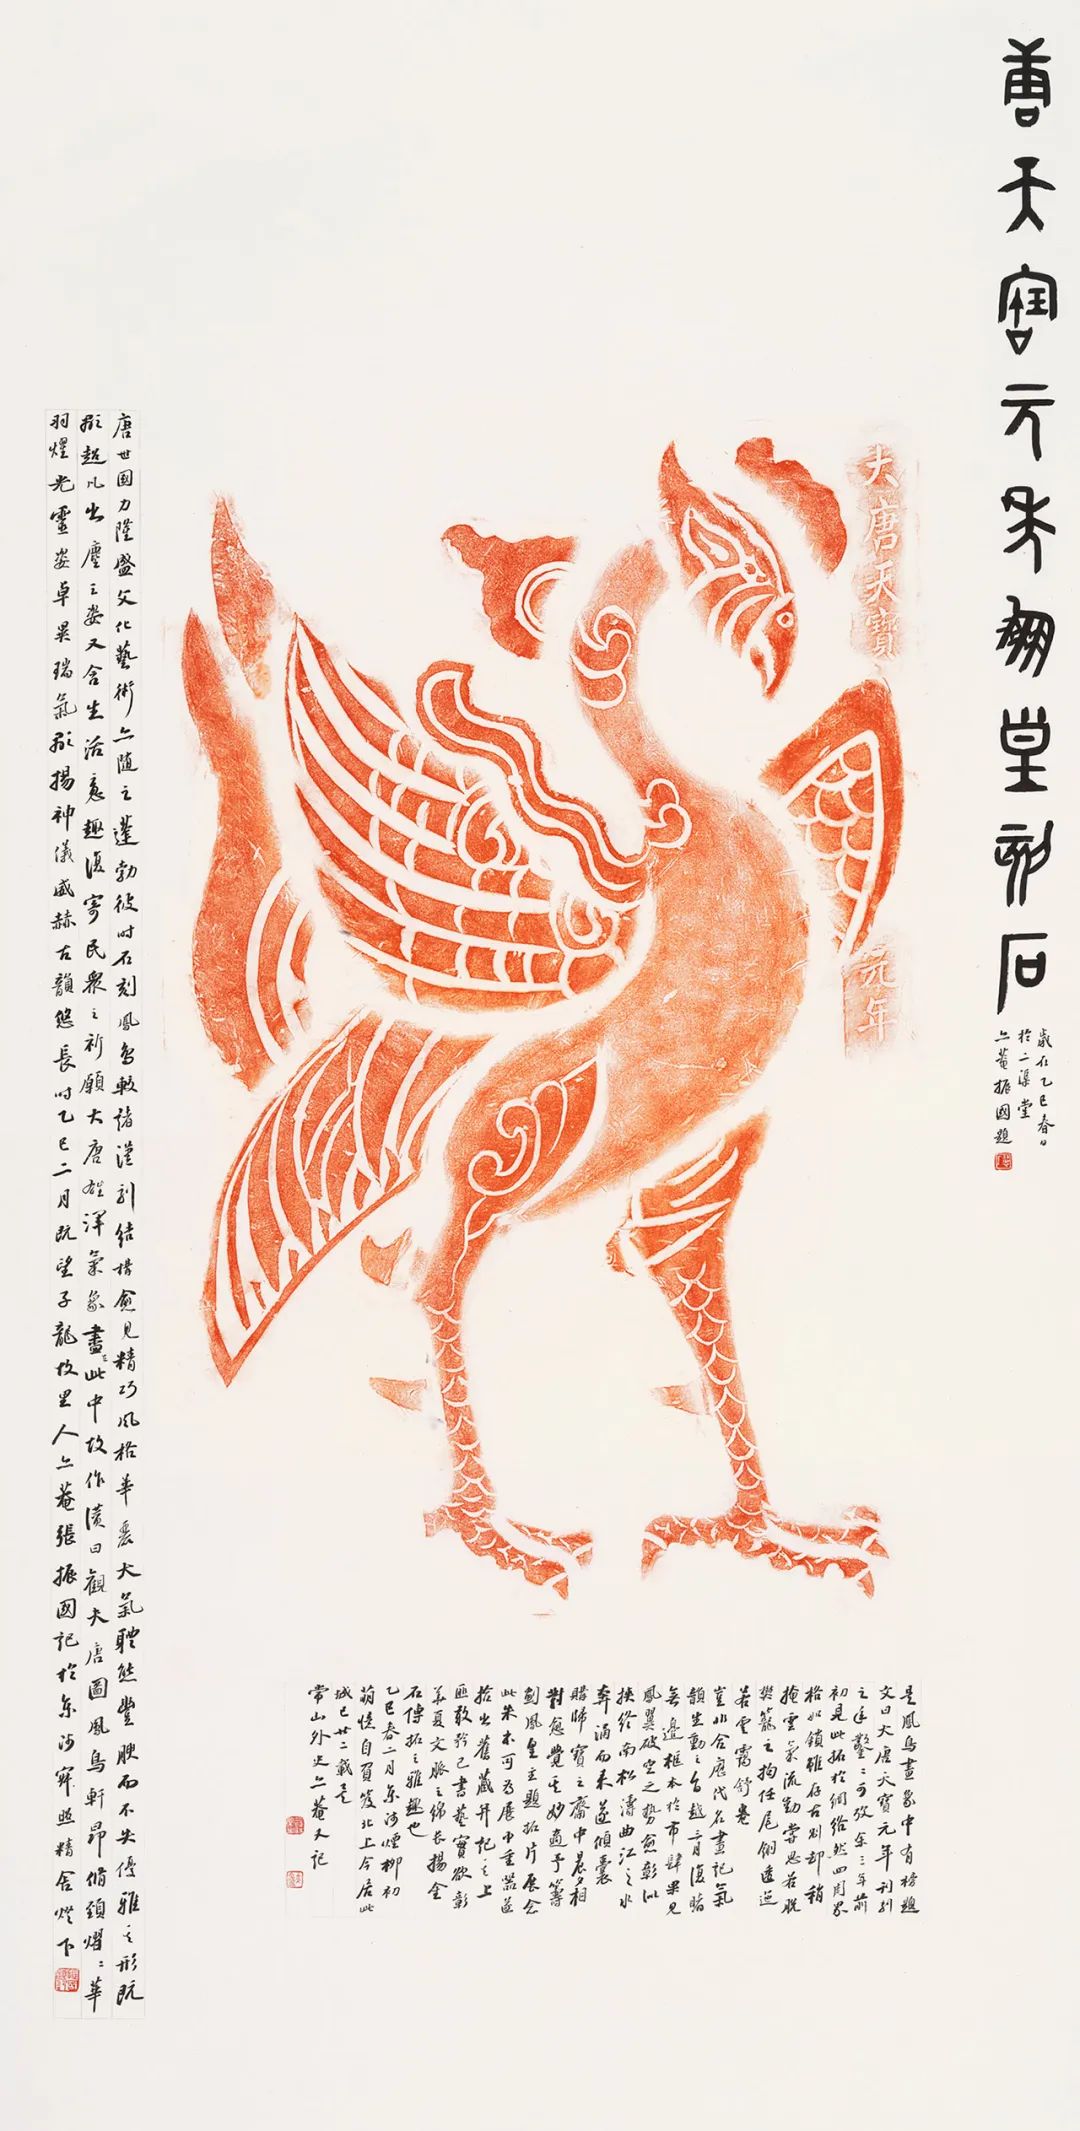 唐天寶元年鳳皇刻石
歲在乙巳春日
於二渠堂
亼菴振國題
大唐天寶
元年
唐世國力隆盛文化藝術亦隨之蓬勃彼時石刻鳳鳥較諸漢刻結構愈見精巧風格華麗大氣體態豐腴而不失優雅之形既
彰超凡出塵之姿又含生活意趣復寄民眾之祈願大唐雄渾氣象盡在此中故作讚曰觀夫唐圖鳳鳥軒昂脩頸熠熠華
羽燿光靈姿卓異瑞氣彰揚神儀威赫古韻悠長時乙巳二月既望子龍故里人亼菴張振國記於東沙寂照精舍燈下
是鳳鳥畫象中有榜題
文曰大唐天寶元年刊刻
之年鑿鑿可攷余三年前
初見此拓於網絡然四周界
格如鎖雖存古刻却稍
掩雲氣流動嘗思若脫
樊籠之拘任尾翎逶迤
若雲霭舒卷
豈非合歷代名畫記氣
韻生動之旨越三月復睹
無邊框本於市肆果見
鳳翼破空之勢愈彰似
挾終南松濤曲江之水
奔涌而來遂傾囊
購歸寶之齋中晨夕相
對愈覺其妙適予籌
劃鳳皇主題拓片展念
此朱本可為展中重器遂
拾出舊藏并記之上
匪敢矜己書藝實欲彰
華夏文脈之綿長揚金
石傳拓之雅趣也
乙巳春二月東沙煙柳初
萌憶自負笈北上今居此
城已廿二載矣
常山外史亼菴又記